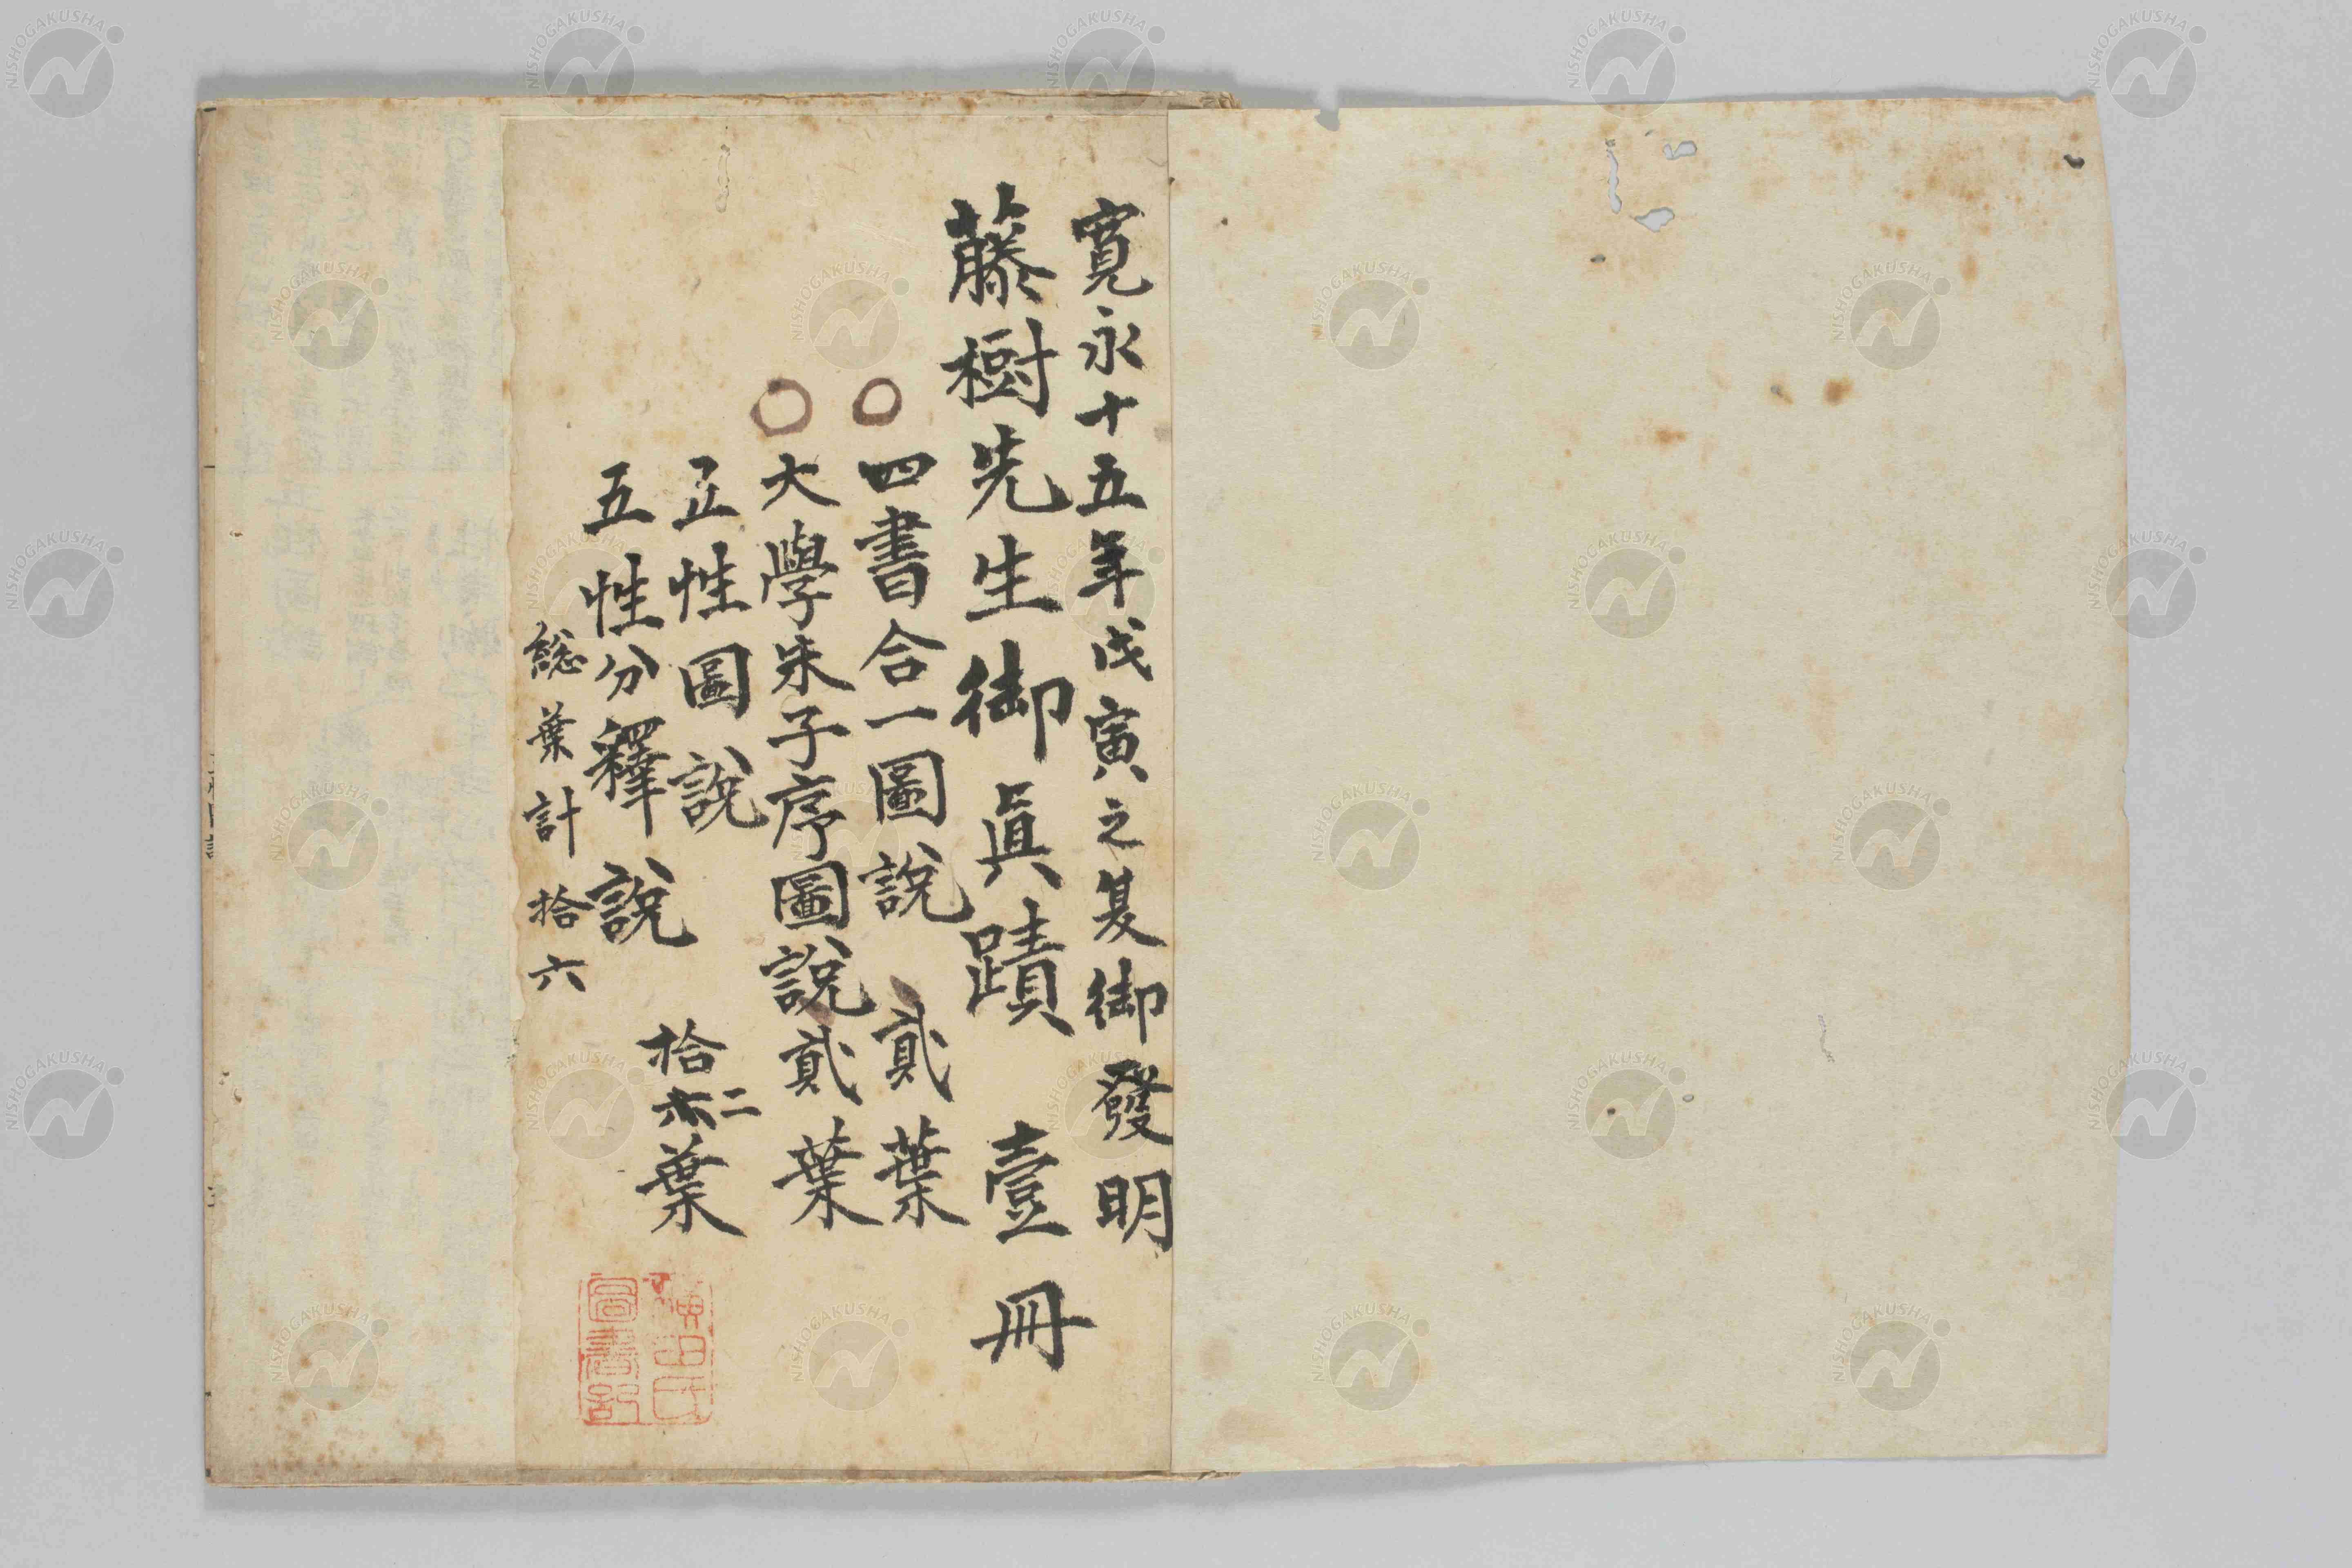 寛永十五年戊寅之夏御發明
藤樹先生御眞蹟 壹冊
○四書合一圖說 貳葉
○大學朱子序圖說貳葉
正性圖說
五性分釋說
拾二葉
総葉計拾六
田氏
圖書記
NISHOGAKUSHA